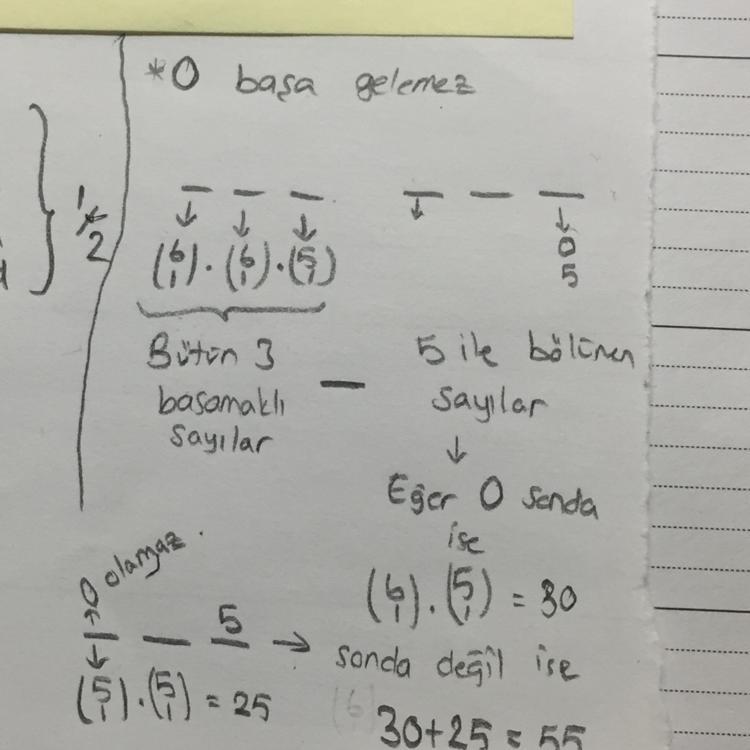 *0 başa gelemez
1/2
(6 1).(6 1).(5 1)
0
5
Bütün 3
basamaklı
sayılar
—
5 ile bölünen
sayılar
Eğer 0 sonda
ise
(6 1).(5 1) = 30
0 olamaz.
5 → sonda değil ise
(5 1).(5 1) = 25
30+25 = 55